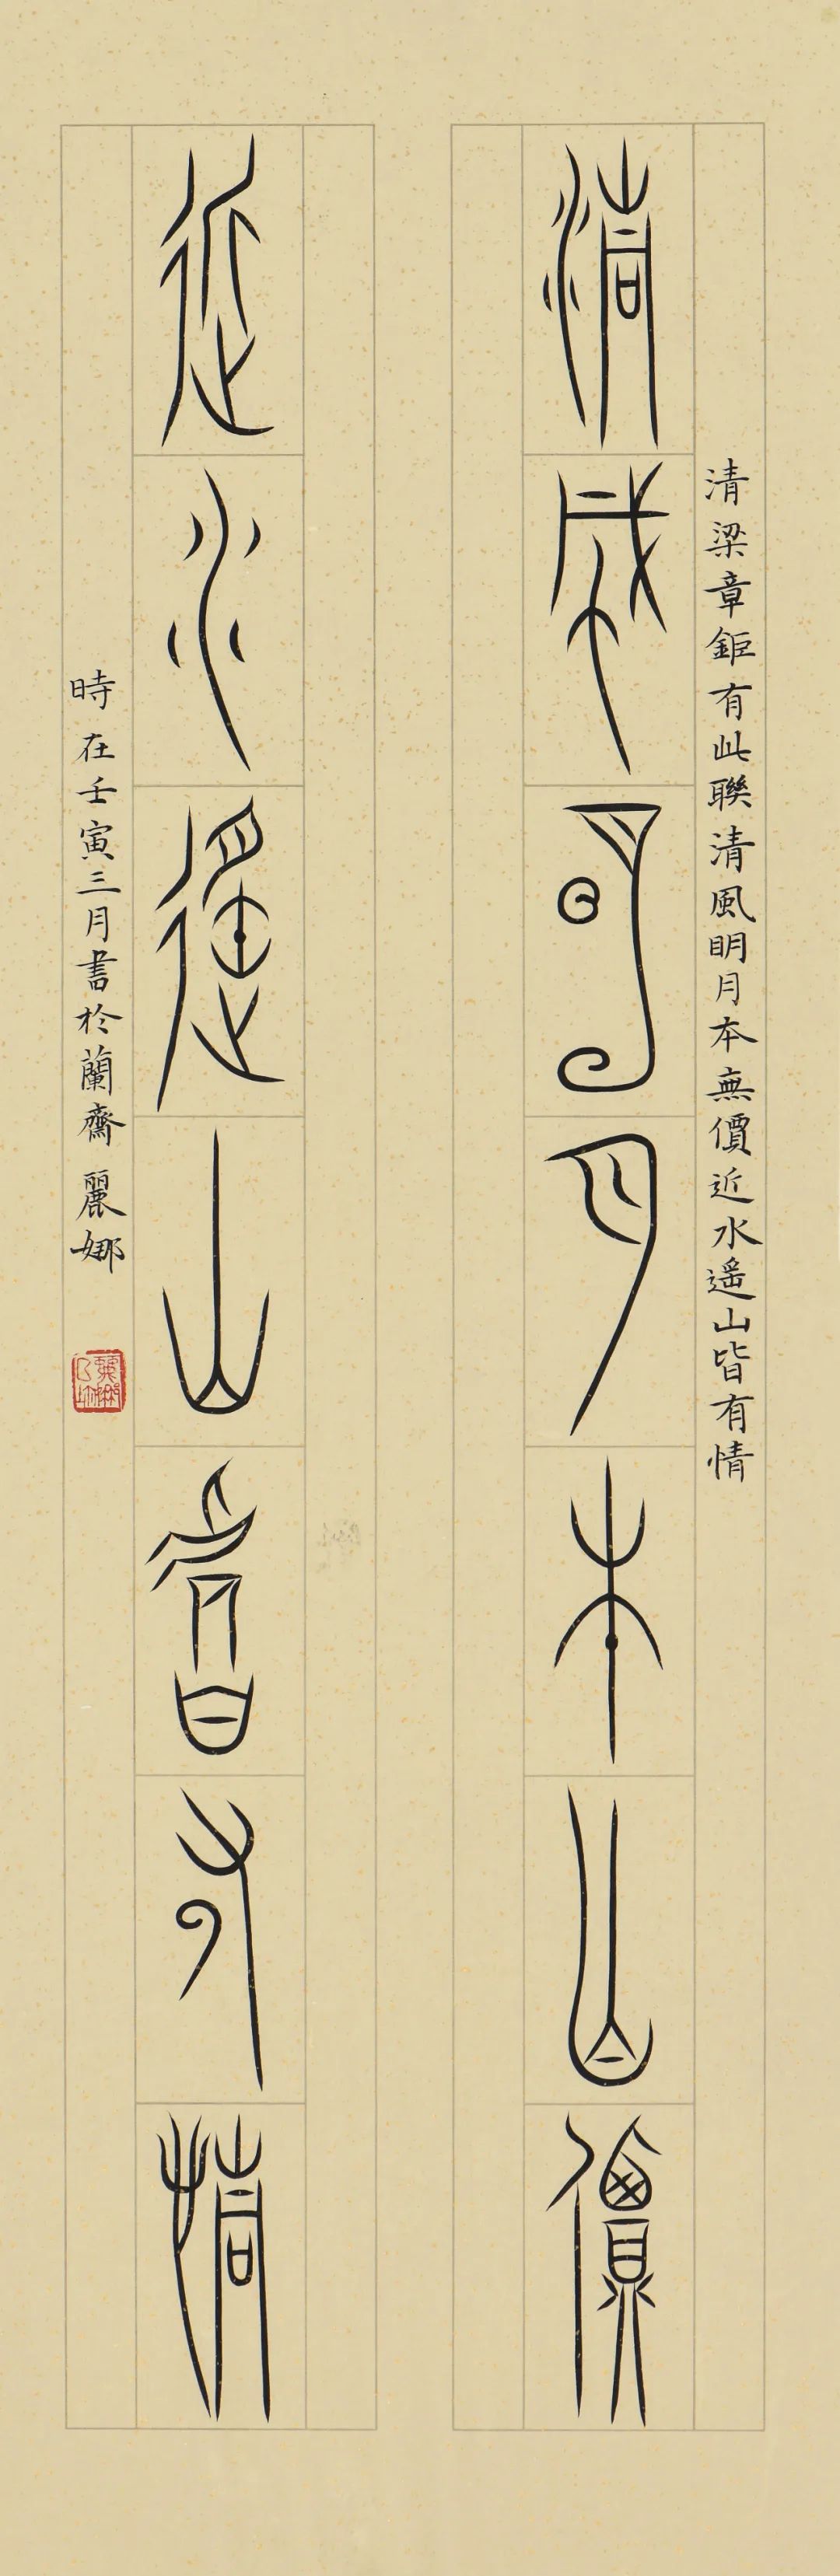 清梁章鉅有此聯清風眀月本無價近水遥山皆有情
清風明月本無價
近水遥山皆有情
時在壬寅三月書於蘭齋麗娜